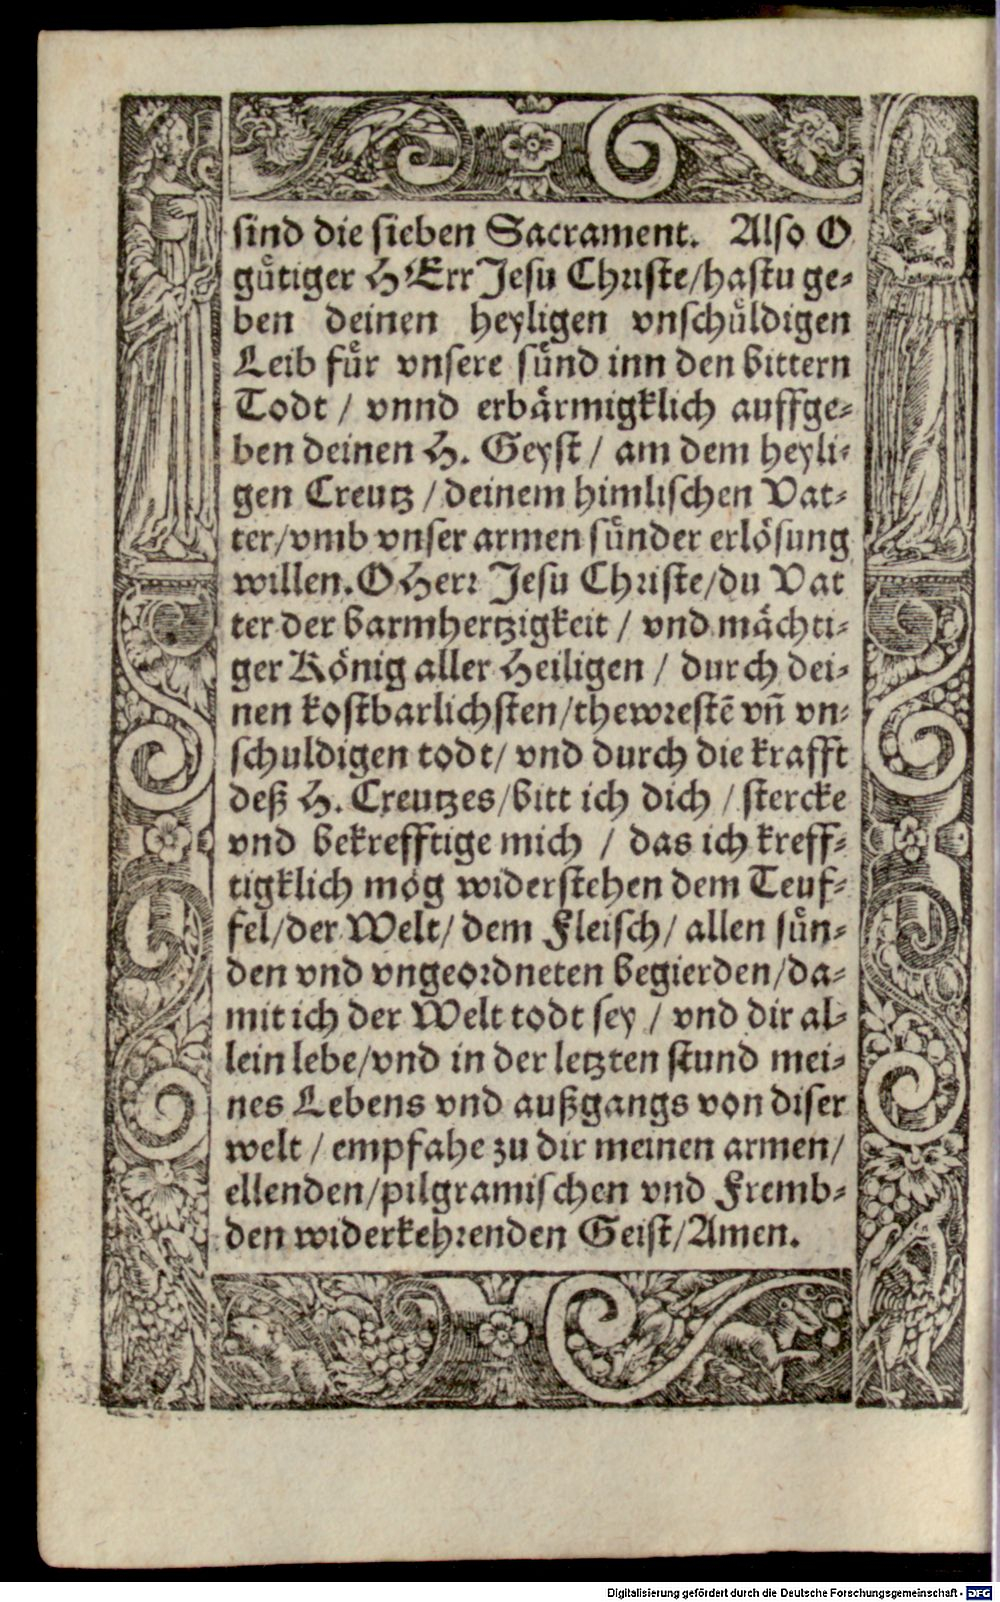 sind die sieben Sacrament. Also O
guͤtiger HErr Jesu Christe/hastu ge-
ben deinen heyligen vnschuͤldigen
Leib fuͤr vnsere suͤnd inn den bittern
Todt / vnnd erbaͤrmigklich auffge-
ben deinen H. Geyst / am dem heyli-
gen Creutz / deinem himlischen Vat-
ter/vmb vnser armen suͤnder erloͤsung
willen. O Herr Jesu Christe/du Vat
ter der barmhertzigkeit / vnd maͤchti-
ger Koͤnig aller Heiligen / durch dei-
nen kostbarlichsten/thewrestē vn̄ vn-
schuldigen todt/ vnd durch die krafft
deß H. Creutzes/bitt ich dich / stercke
vnd bekrefftige mich / das ich kreff-
tigklich moͤg widerstehen dem Teuf-
fel/der Welt/ dem Fleisch/ allen suͤn-
den vnd vngeordneten begierden/da-
mit ich der Welt todt sey / vnd dir al-
lein lebe/vnd in der letzten stund mei-
nes Lebens vnd außgangs von diser
welt / empfahe zu dir meinen armen/
ellenden/pilgramischen vnd Fremb-
den widerkehrenden Geist/Amen.
Digitalisierung gefördert durch die Deutsche Forschungsgemeinschaft - DFG